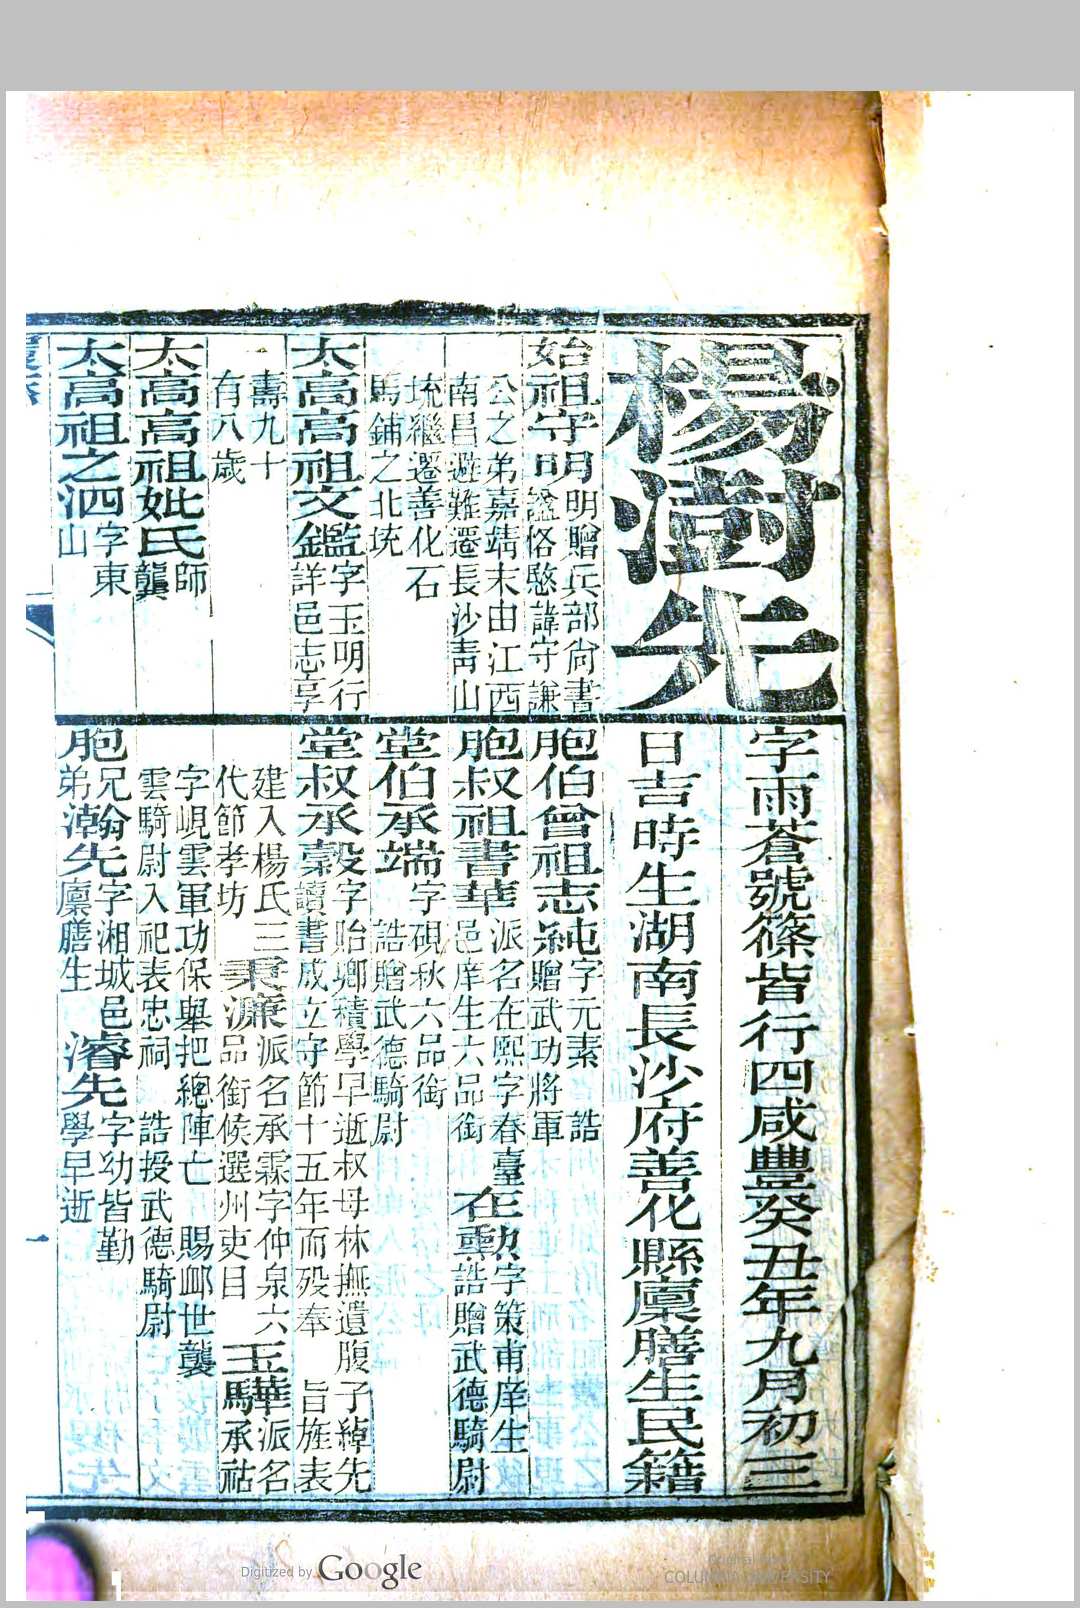 楊澍先
字雨蒼號篠皆行四咸豐癸丑年九月初三
日吉時生湖南長沙府善化縣廩膳生民籍
始祖守明明贈兵部尚書
謚恪愍諱守謙
公之弟嘉靖末由江西
南昌避難遷長沙靑山
坑繼遷善化石
馬鋪之北坑
太高高祖文鑑字玉明行
詳邑志享
壽九十
有八歲
太高高祖妣氏師
龔
太高祖之泗字東
山
胞伯曾祖志純字元素 誥
贈武功將軍
胞叔祖書華派名在熙字春臺
邑庠生六品銜
在勳字策甫庠生
誥贈武德騎尉
堂伯承端字硯秋六品銜
誥贈武德騎尉
堂叔承穀字貽鄉積學早逝叔母林撫遺腹子綽先
讀書成立守節十五年而歿奉 旨旌表
建入楊氏三
代節孝坊
秉濂派名承霖字仲泉六
品銜候選州吏目
玉華派名
承祜
字峴雲軍功保舉把總陣亡 賜卹世襲
雲騎尉入祀表忠祠 誥授武德騎尉
胞兄弟瀚先字湘城邑
廩膳生
濬先字幼皆勤
學早逝
一
Digitized by Google
COLUMBIA UNIVERSITY